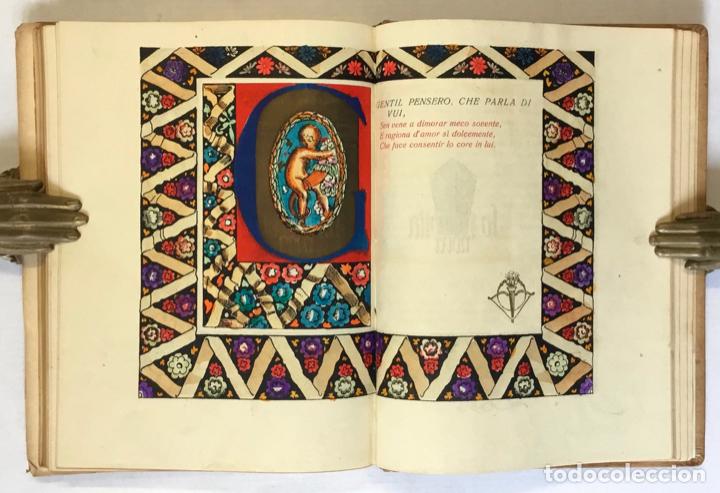 GENTIL PENSERO, CHE PARLA DI
VUI,
Sen vene a dimorar meco sovente,
E ragiona d'amor sì dolcemente,
Che face consentir lo core in lui.
todocoleccion